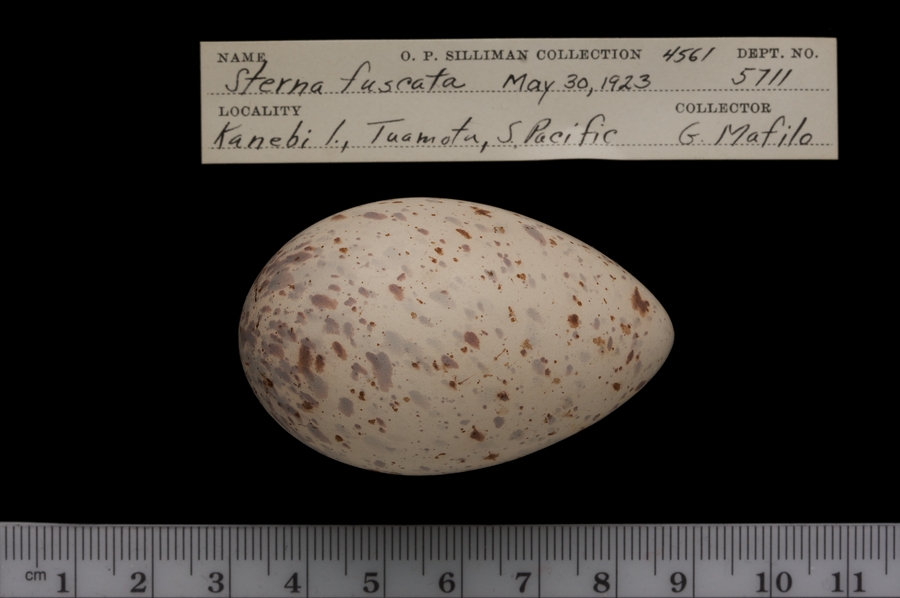 NAME O. P. SILLIMAN COLLECTION 4561 DEPT. NO.
Sterna fuscata May 30, 1923 5711
LOCALITY COLLECTOR
Kanebi I., Tuamotu, S. Pacific G. Mafilo
cm 1 2 3 4 5 6 7 8 9 10 11